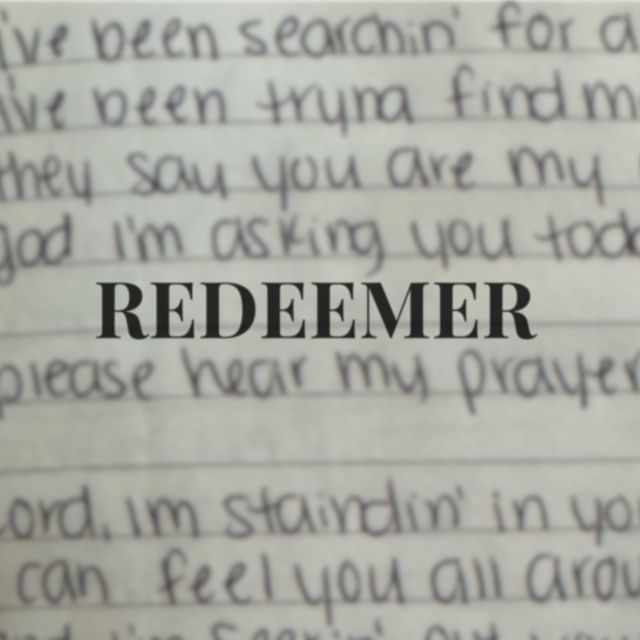 i've been searchin' for a
i've been tryna find m
they say you are my
god I'm asking you toda
REDEEMER
please hear my prayer
Lord, Im staindin' in yo
can feel you all arou